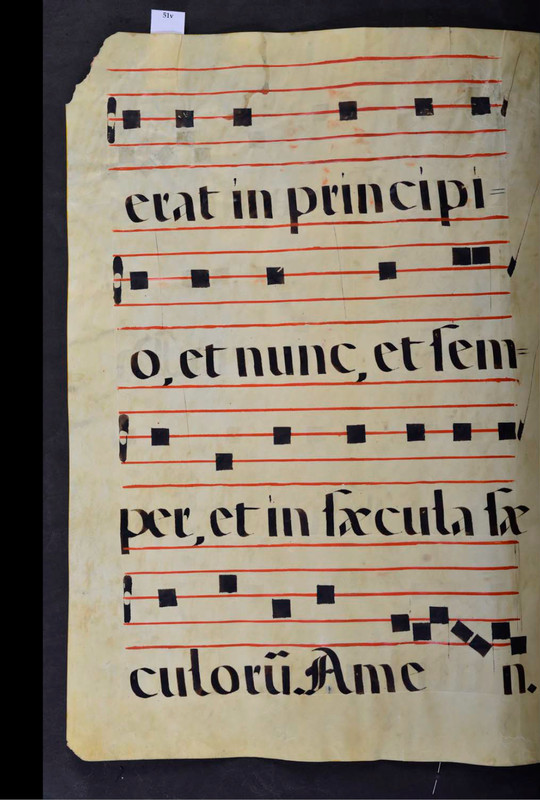 51v
erat in principi=
o, et nunc, et ſem=
per, et in ſæcula ſæ
culorũ. Ame n.